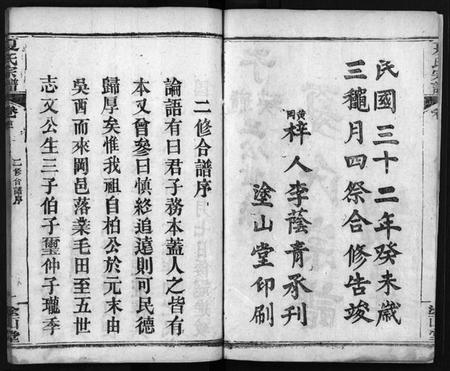 民國三十二年癸未歲
三穐月四祭合修告竣
黄岡梓人李蔭青承刊
塗山堂印刷
二修合譜序
論語有曰君子務本蓋人之皆有
本又曾參曰慎終追遠則可民德
歸厚矣惟我祖自柏公於元末由
吳西而來岡邑落業毛田至五世
志文公生三子伯子璽仲子瓏季
夏氏宗譜
卷首
二修合譜序
塗山堂